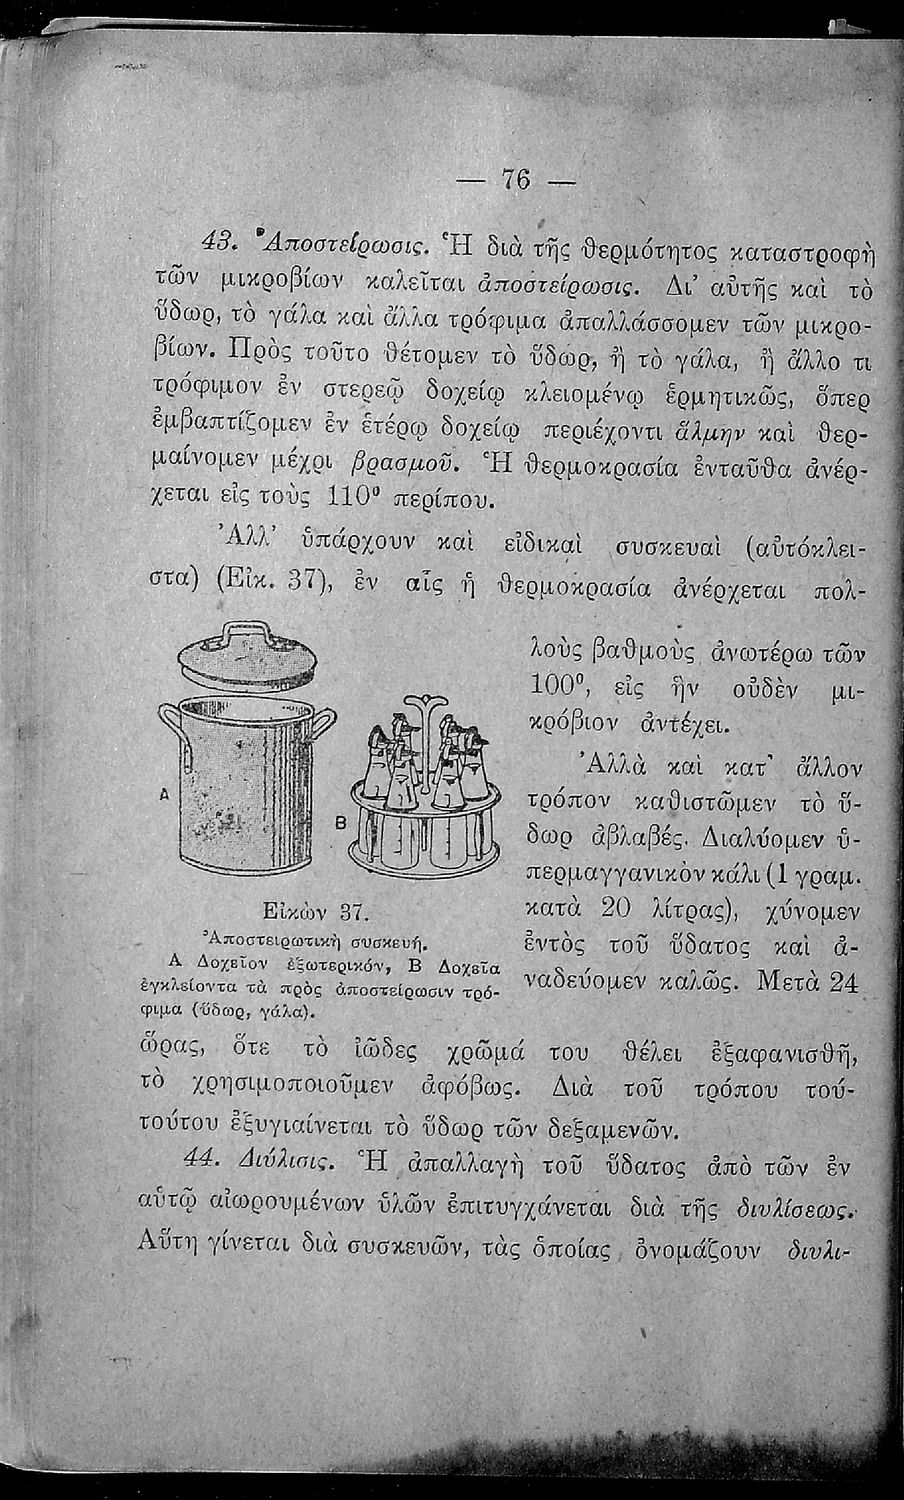 — 76 —
43. Ἀποστείρωσις. Ἡ διὰ τῆς θερμότητος καταστροφὴ
τῶν μικροβίων καλεῖται ἀποστείρωσις. Δι' αὐτῆς καὶ τὸ
ὕδωρ, τὸ γάλα καὶ ἄλλα τρόφιμα ἀπαλλάσσομεν τῶν μικρο-
βίων. Πρὸς τοῦτο θέτομεν τὸ ὕδωρ, ἢ τὸ γάλα, ἢ ἄλλο τι
τρόφιμον ἐν στερεῷ δοχείῳ κλειομένῳ ἑρμητικῶς, ὅπερ
ἐμβαπτίζομεν ἐν ἑτέρῳ δοχείῳ περιέχοντι ἅλμην καὶ θερ-
μαίνομεν μέχρι βρασμοῦ. Ἡ θερμοκρασία ἐνταῦθα ἀνέρ-
χεται εἰς τοὺς 110° περίπου.
Ἀλλ' ὑπάρχουν καὶ εἰδικαὶ συσκευαὶ (αὐτόκλει-
στα) (Εἰκ. 37), ἐν αἷς ἡ θερμοκρασία ἀνέρχεται πολ-
λοὺς βαθμοὺς ἀνωτέρω τῶν
100°, εἰς ἣν οὐδὲν μι-
κρόβιον ἀντέχει.
Ἀλλὰ καὶ κατ' ἄλλον
τρόπον καθιστῶμεν τὸ ὕ-
δωρ ἀβλαβές. Διαλύομεν ὑ-
περμαγγανικὸν κάλι (1 γραμ.
κατὰ 20 λίτρας), χύνομεν
ἐντὸς τοῦ ὕδατος καὶ ἀ-
ναδεύομεν καλῶς. Μετὰ 24
A
B
Εἰκὼν 37.
Ἀποστειρωτικὴ συσκευή.
Α Δοχεῖον ἐξωτερικόν, Β Δοχεῖα
ἐγκλείοντα τὰ πρὸς ἀποστείρωσιν τρό-
φιμα (ὕδωρ, γάλα).
ὥρας, ὅτε τὸ ἰῶδες χρῶμά του θέλει ἐξαφανισθῆ,
τὸ χρησιμοποιοῦμεν ἀφόβως. Διὰ τοῦ τρόπου τού-
τούτου ἐξυγιαίνεται τὸ ὕδωρ τῶν δεξαμενῶν.
44. Διύλισις. Ἡ ἀπαλλαγὴ τοῦ ὕδατος ἀπὸ τῶν ἐν
αὐτῷ αἰωρουμένων ὑλῶν ἐπιτυγχάνεται διὰ τῆς διυλίσεως.
Αὕτη γίνεται διὰ συσκευῶν, τὰς ὁποίας ὀνομάζουν διυλι-